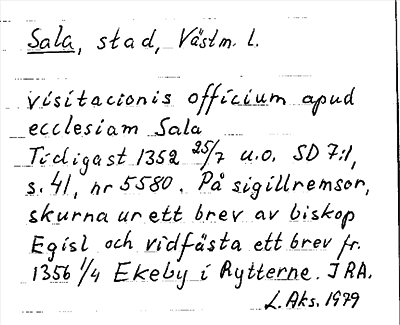 Sala, stad, Västm. l.
visitacionis officium apud
ecclesiam Sala
Tidigast 1352 25/7 u.o. SD 7:1,
s. 41, nr 5580. På sigillremsor,
skurna ur ett brev av biskop
Egisl och vidfästa ett brev fr.
1356 1/4 Ekeby i Rytterne. JRA.
L. Aks. 1979